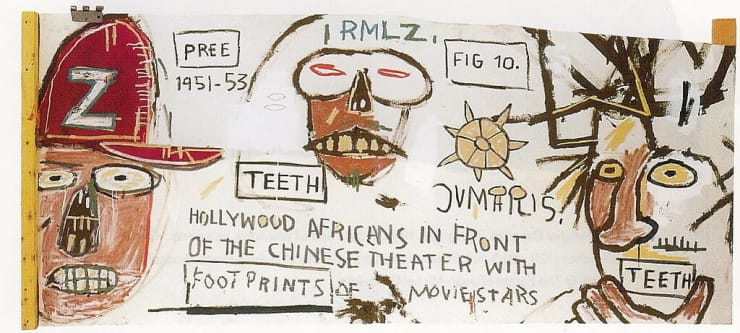 Z
PREE
1951-53
¡RMLZ.
FIG 10.
TEETH
JVMARIS.
HOLLYWOOD AFRICANS IN FRONT
OF THE CHINESE THEATER WITH
FOOTPRINTS OF MOVIESTARS
TEETH